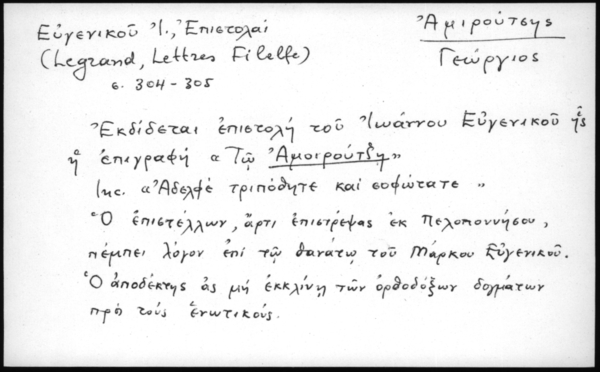 Εὐγενικοῦ Ἰ., Ἐπιστολαί
(Legrand, Lettres Filelfe)
σ. 304-305
Ἀμιρούτσης
Γεώργιος
Ἐκδίδεται ἐπιστολή τοῦ Ἰωάννου Εὐγενικοῦ ἧς
ἡ ἐπιγραφή «Τῷ Ἀμοιρούτζῃ»
Inc. «Ἀδελφέ τριπόθητε καί σοφώτατε»
Ὁ ἐπιστέλλων, ἄρτι ἐπιστρέψας ἐκ Πελοποννήσου,
πέμπει λόγον ἐπί τῷ θανάτῳ τοῦ Μάρκου Εὐγενικοῦ.
Ὁ ἀποδέκτης ἄς μή ἐκκλίνῃ τῶν ὀρθοδόξων δογμάτων
πρός τούς ἑνωτικούς.